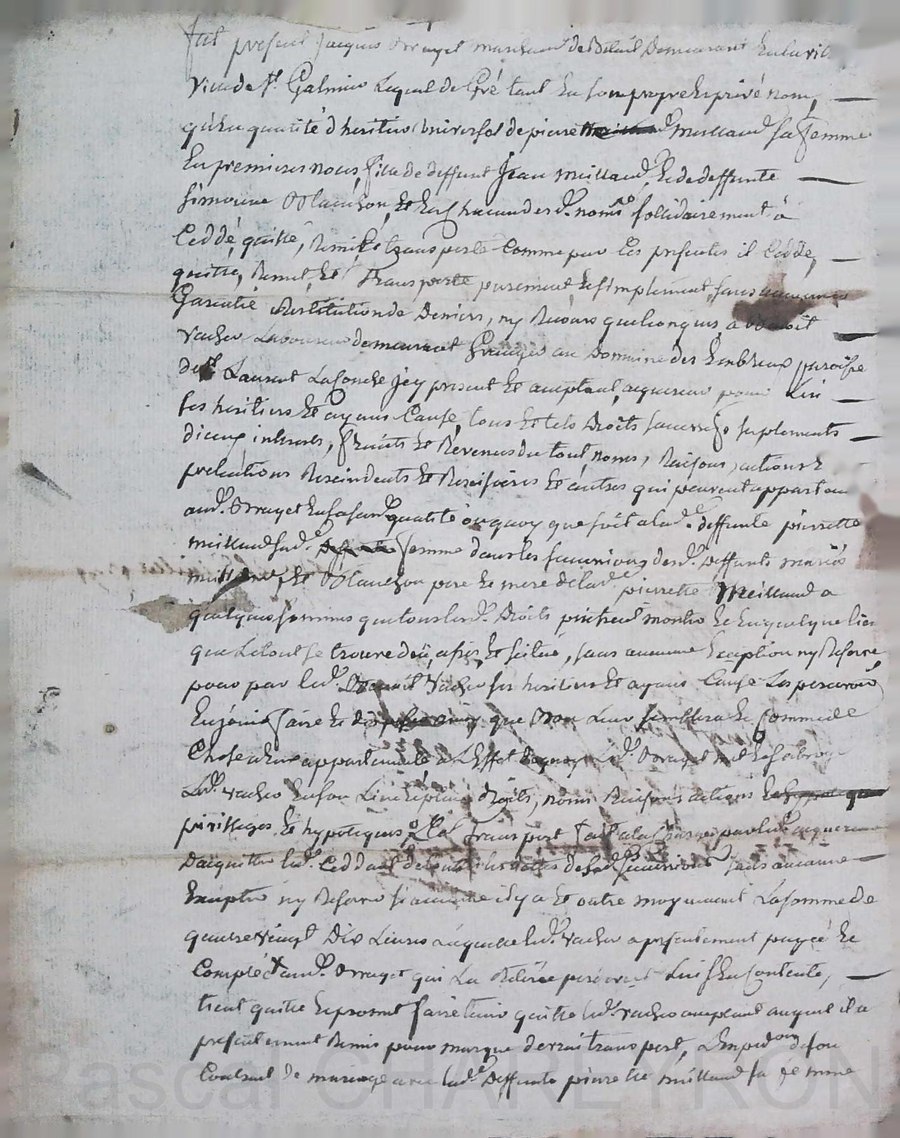 fut present Jacques Orayet marchand de Detail Demeurant En la ville
Ville de St. Galmier Lequel de Gré tant En son propre Et privé nom,
qu'En qualité d'heritier Universel de pierrette meilland sa femme
En premieres noces, fille de deffunt Jean meilland, Et de deffunte
Simonne Et En Chacun desd. noms sollidairement à
Ceddé, quitté, Remis Et transporté Comme par Ces presentes il Cedde,
quitte, Remet, Et Transporte purement Et simplement, sans aucune
Garentie Restitution de Deniers, ny Recours quelconques, à Benoit
Vacher Laboureur demeurant Granger au Domaine des paroisse
de St. Laurent La Conche Icy present Et acceptant, acquereur pour Lui
ses heritiers Et ayans Cause, tous Et tels Droits successifs suplements
diceux interets, fruits Et Revenus du tout, noms, Raisons, actions Et
pretentions Rescindents Et Rescisoires Et autres qui peuvent appartenir
aud. Orayet En sa sand. qualité ou quoy que soit a lad. deffunte pierrette
meilland sad. femme dans les successions desd. Deffunts mariés
meilland, Et pere Et mere de lad. pierrette Meilland a
quelques sommes que tous lesd. Droits puissent monter Et En quelque lieu
que Le tout se trouve deü, assis, Et scitué, sans aucune Exception ny Reserve
pour par led. Benoit Vacher ses heritiers Et ayans Cause Les percevoir
En jouir faire Et disposer que Bon Leur semblera Et Comme de
Chose a eux appartenante a L'Effet dequoy Led. Orayet met Et subroge
Led. Vacher En son Lieu Et place droits, noms Raisons actions
privileges Et hypoteques Et Est Transport fait a la Charge par led. acquereur
D'acquitter led. Ceddant de toutes Dettes desd. successions sans aucune
Exception ny Reserve si aucune il y a Et outre moyennant La somme de
quatre vingt Dix Livres Laquelle led. Vacher a presentement payée Et
Compté aud. Orayet qui La Retirée Lui s'En Contente,
tient quitte Et promet faire tenir quitte led. Vacher acceptant auquel il a
presentement Remis pour marque du vrai transport, L'Expedon de son
Contract de mariage avec lad. Deffunte pierrette meilland sa femme
Pascal CHARETRON